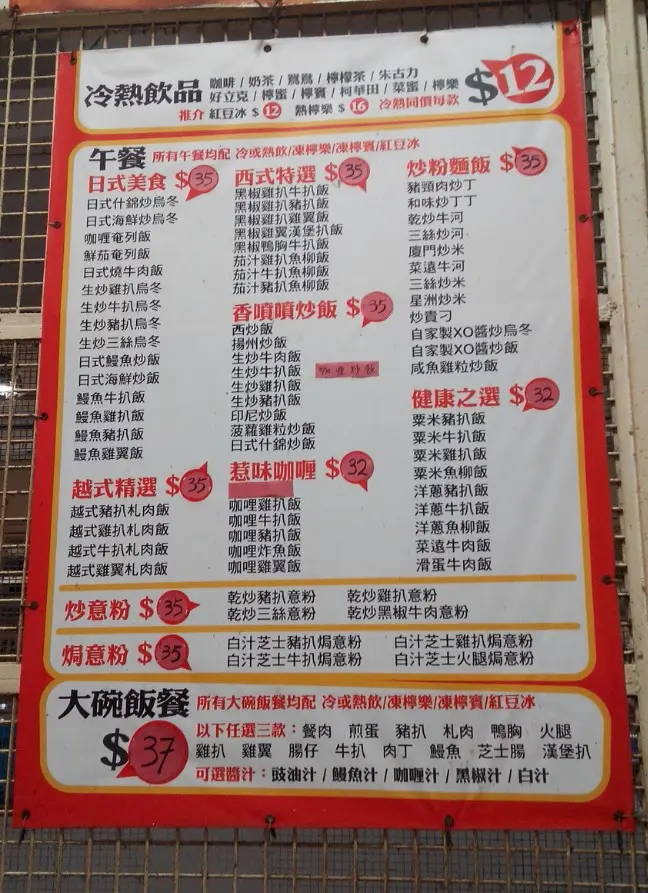 冷熱飲品
咖啡 / 奶茶 / 鴛鴦 / 檸檬茶 / 朱古力
好立克 / 檸蜜 / 檸賓 / 柯華田 / 菜蜜 / 檸樂
推介 紅豆冰 $12 熱檸樂 $16 冷熱同價每款
$12
午餐 所有午餐均配 冷或熱飲/凍檸樂/凍檸賓/紅豆冰
日式美食 $35
日式什錦炒烏冬
日式海鮮炒烏冬
咖喱奄列飯
鮮茄奄列飯
日式燒牛肉飯
生炒雞扒烏冬
生炒牛扒烏冬
生炒豬扒烏冬
生炒三絲烏冬
日式鰻魚炒飯
日式海鮮炒飯
鰻魚牛扒飯
鰻魚雞扒飯
鰻魚豬扒飯
鰻魚雞翼飯
越式精選 $35
越式豬扒札肉飯
越式雞扒札肉飯
越式牛扒札肉飯
越式雞翼札肉飯
西式特選 $35
黑椒雞扒牛扒飯
黑椒雞扒豬扒飯
黑椒雞扒雞翼飯
黑椒雞翼漢堡扒飯
黑椒鴨胸牛扒飯
茄汁雞扒魚柳飯
茄汁牛扒魚柳飯
茄汁豬扒魚柳飯
香噴噴炒飯 $35
西炒飯
揚州炒飯
生炒牛肉飯
生炒牛扒飯
生炒雞扒飯
生炒豬扒飯
印尼炒飯
菠蘿雞粒炒飯
日式什錦炒飯
咖喱炒飯
惹味咖喱 $32
咖哩雞扒飯
咖哩牛扒飯
咖哩豬扒飯
咖哩炸魚飯
咖哩雞翼飯
炒粉麵飯 $35
豬頸肉炒丁
和味炒丁丁
乾炒牛河
三絲炒河
廈門炒米
菜遠牛河
三絲炒米
星洲炒米
炒貴刁
自家製XO醬炒烏冬
自家製XO醬炒飯
咸魚雞粒炒飯
健康之選 $32
粟米豬扒飯
粟米牛扒飯
粟米雞扒飯
粟米魚柳飯
洋蔥豬扒飯
洋蔥牛扒飯
洋蔥魚柳飯
菜遠牛肉飯
滑蛋牛肉飯
炒意粉 $35
乾炒豬扒意粉 乾炒雞扒意粉
乾炒三絲意粉 乾炒黑椒牛肉意粉
焗意粉 $35
白汁芝士豬扒焗意粉 白汁芝士雞扒焗意粉
白汁芝士牛扒焗意粉 白汁芝士火腿焗意粉
大碗飯餐 所有大碗飯餐均配 冷或熱飲/凍檸樂/凍檸賓/紅豆冰
$37
以下任選三款：餐肉 煎蛋 豬扒 札肉 鴨胸 火腿
雞扒 雞翼 腸仔 牛扒 肉丁 鰻魚 芝士腸 漢堡扒
可選醬汁：豉油汁 / 鰻魚汁 / 咖喱汁 / 黑椒汁 / 白汁